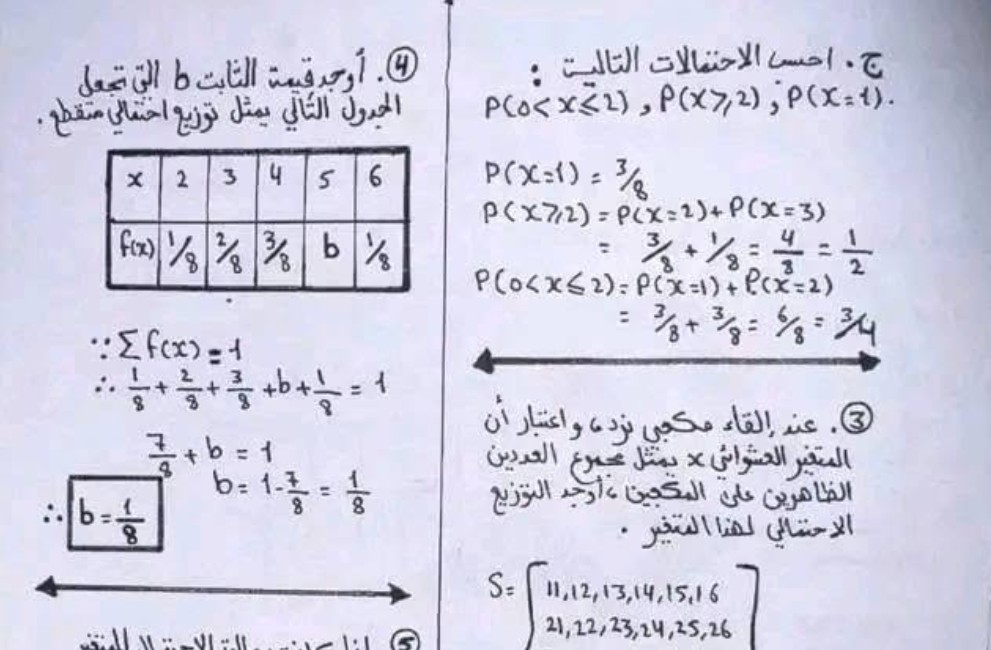 ج. احسب الاحتمالات التالية :
P(0<X≤2) , P(X≥2) , P(X=1).
P(X=1) = 3/8
P(X≥2) = P(X=2)+P(X=3)
= 3/8 + 1/8 = 4/8 = 1/2
P(0<X≤2) = P(X=1) + P(X=2)
= 3/8 + 3/8 = 6/8 = 3/4
③. عند إلقاء مكعبي نرد ، واعتبار أن
المتغير العشوائي X يمثل مجموع العددين
الظاهرين على المكعبين ، أوجد التوزيع
الاحتمالي لهذا المتغير .
S= [11,12,13,14,15,16
21,22,23,24,25,26
④. أوجد قيمة الثابت b التي تجعل
الجدول التالي يمثل توزيع احتمالي متقطع .
x 2 3 4 5 6
f(x) 1/8 2/8 3/8 b 1/8
∵ Σ f(x) = 1
∴ 1/8 + 2/8 + 3/8 + b + 1/8 = 1
7/8 + b = 1
b = 1 - 7/8 = 1/8
∴ b = 1/8
⑤. إذا